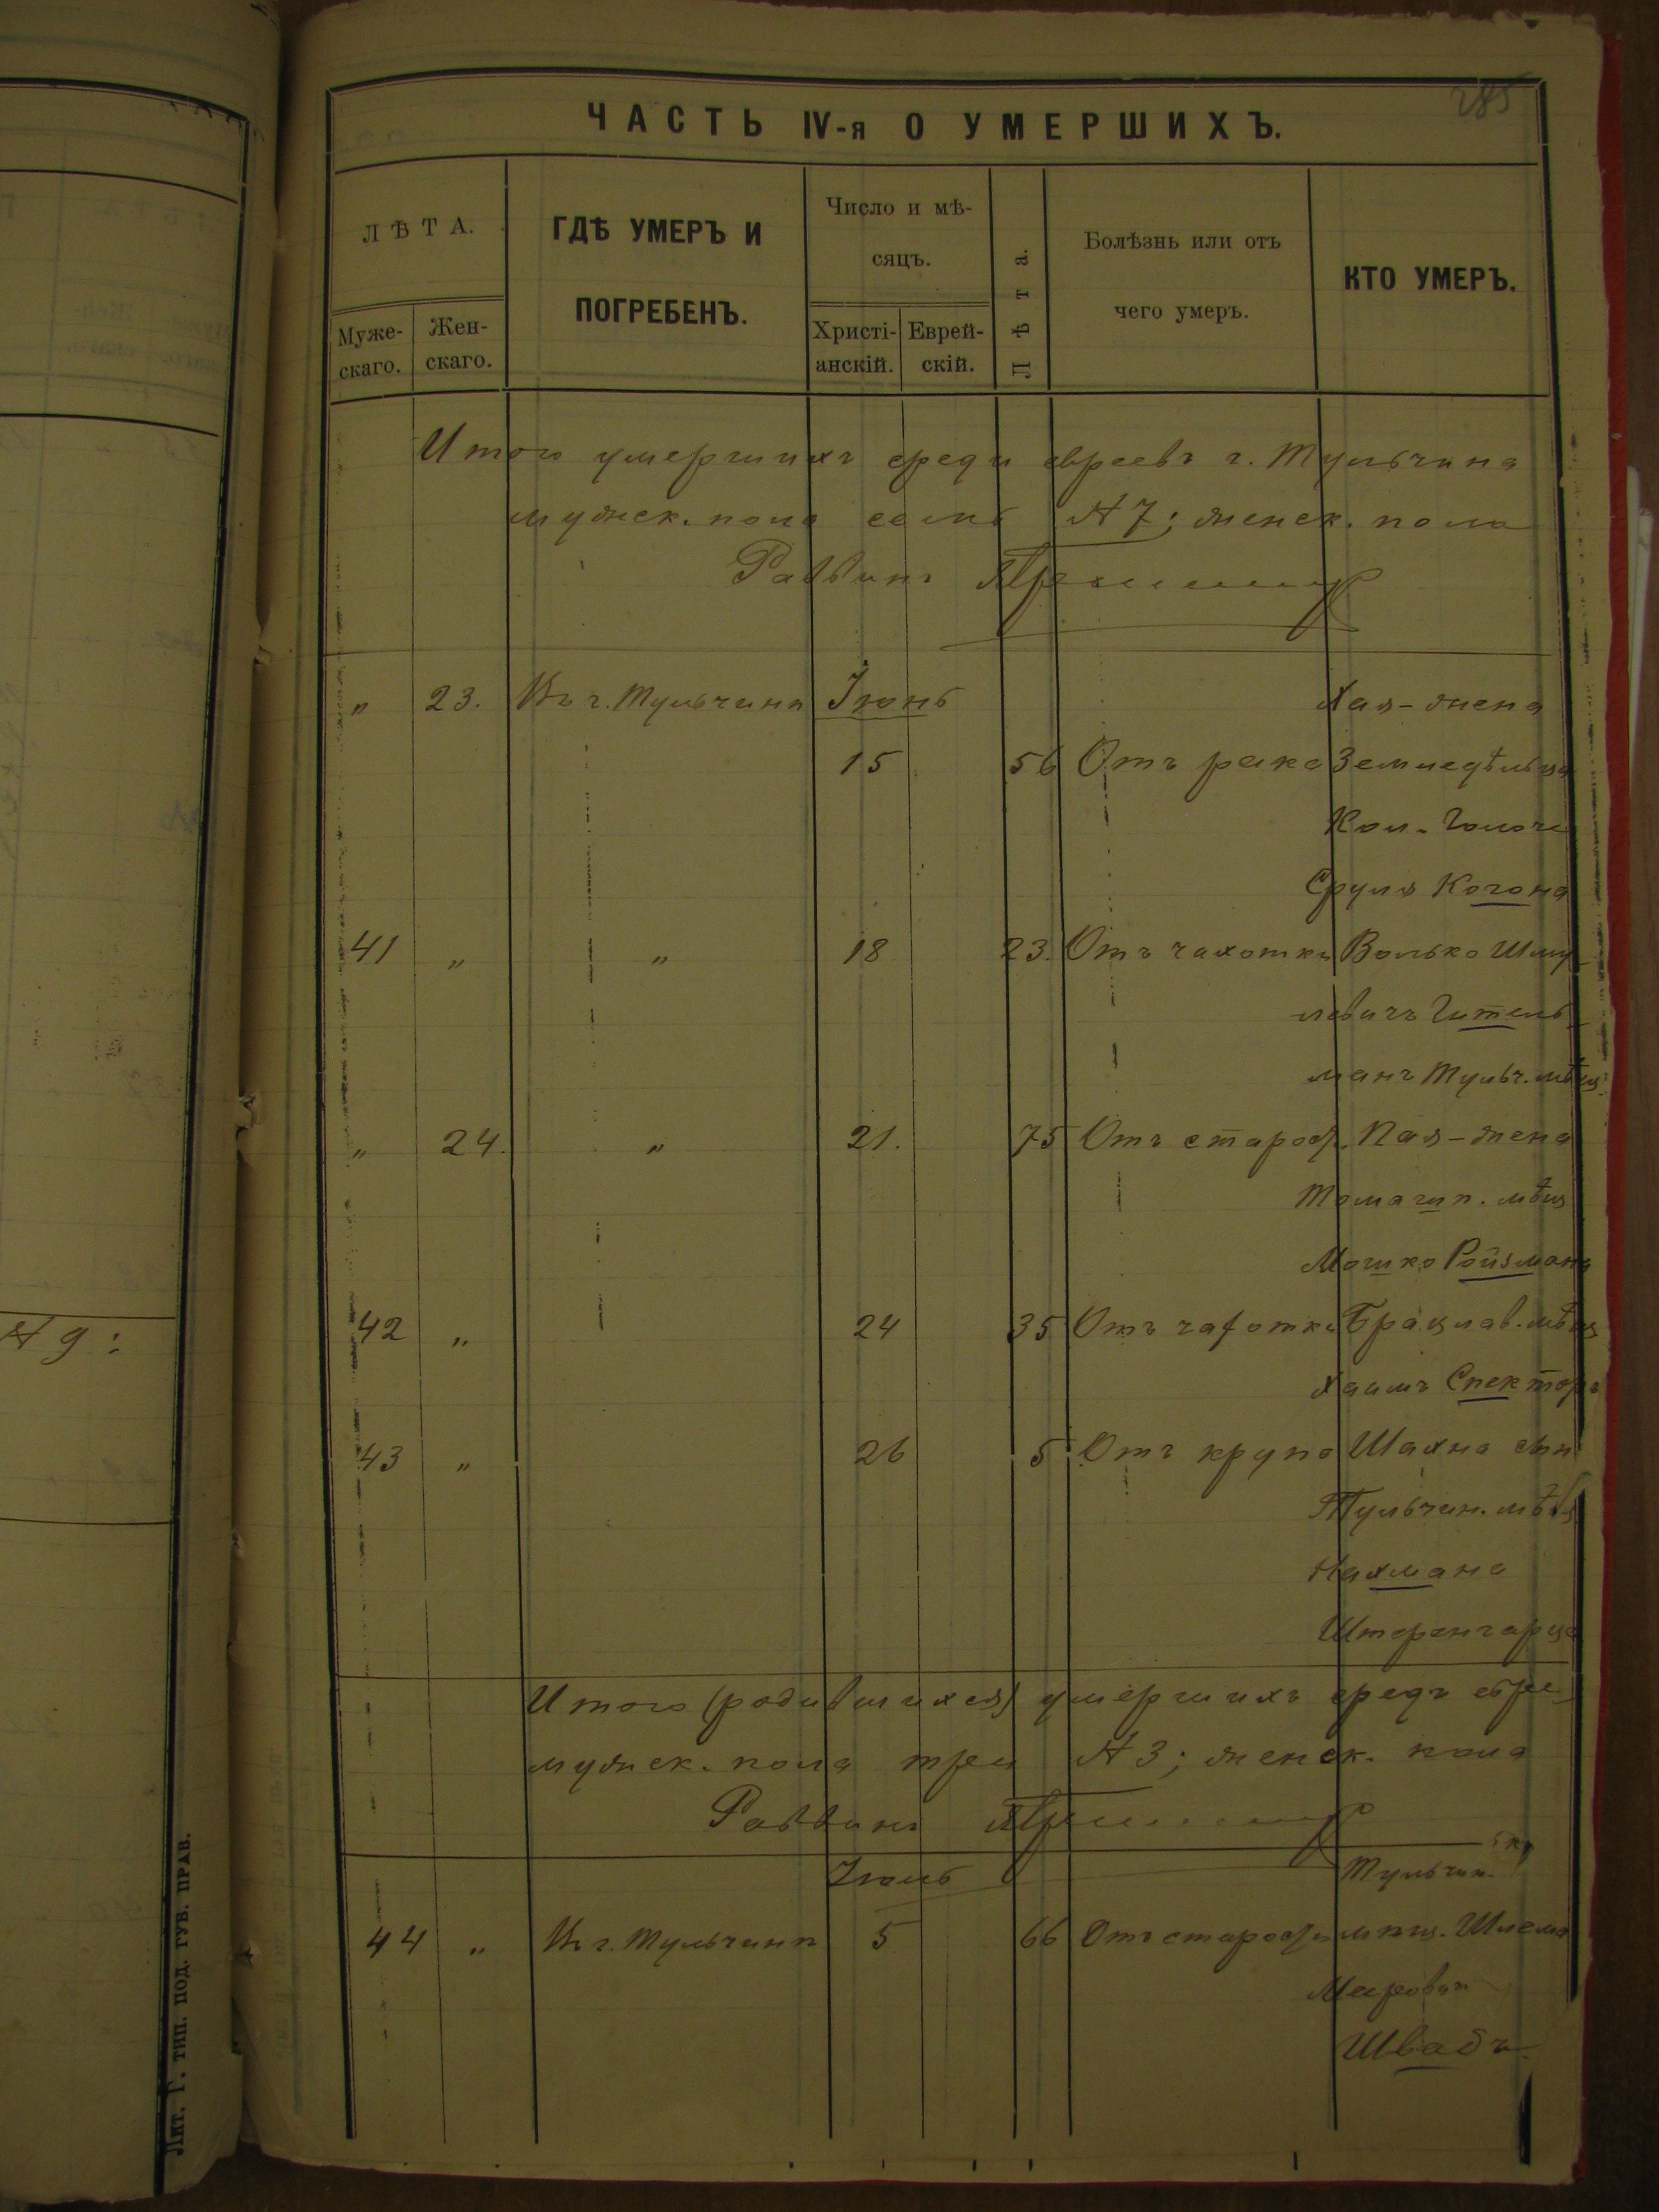 285
ЧАСТЬ IV-я О УМЕРШИХЪ.
ЛѢТА.
Муже-
скаго.
Жен-
скаго.
ГДѢ УМЕРЪ И
ПОГРЕБЕНЪ.
Число и мѣ-
сяцъ.
Христі-
анскій.
Еврей-
скій.
Лѣта.
Болѣзнь или отъ
чего умеръ.
КТО УМЕРЪ.
Итого умершихъ среди евреевъ г. Тульчина
мужск. пола семь № 7; женск. пола
Раввинъ
„ 23. Въ г. Тульчинѣ Іюнь Хая - жена
15 56 Отъ рака Земледѣльца
Кол.
Сруля Когона
41 „ „ 18 23. Отъ чахотки Волько Шму-
левичъ Гитель-
манъ Тульч. мѣщ.
„ 24. „ 21. 75 Отъ старос. Пая - жена
Томашп. мѣщ
Мошко Ройзмана
42 „ 24 35 Отъ чахотки Брацлав. мѣщ
Хаимъ Спекторъ
43 „ 26 5 Отъ крупа Шахна сын
Тульчин. мѣщ
Нахмана
Штеренгарца
Итого (родившихся) умершихъ средъ евре-
мужск. пола три № 3; женск. пола
Раввинъ
Іюль Тульчин.
44 „ Въ г. Тульчинѣ 5 66 Отъ старости мѣщ. Шлема
Мееровичъ
Швабъ
№ 9:
Лит. Г. тип. под. губ. прав.